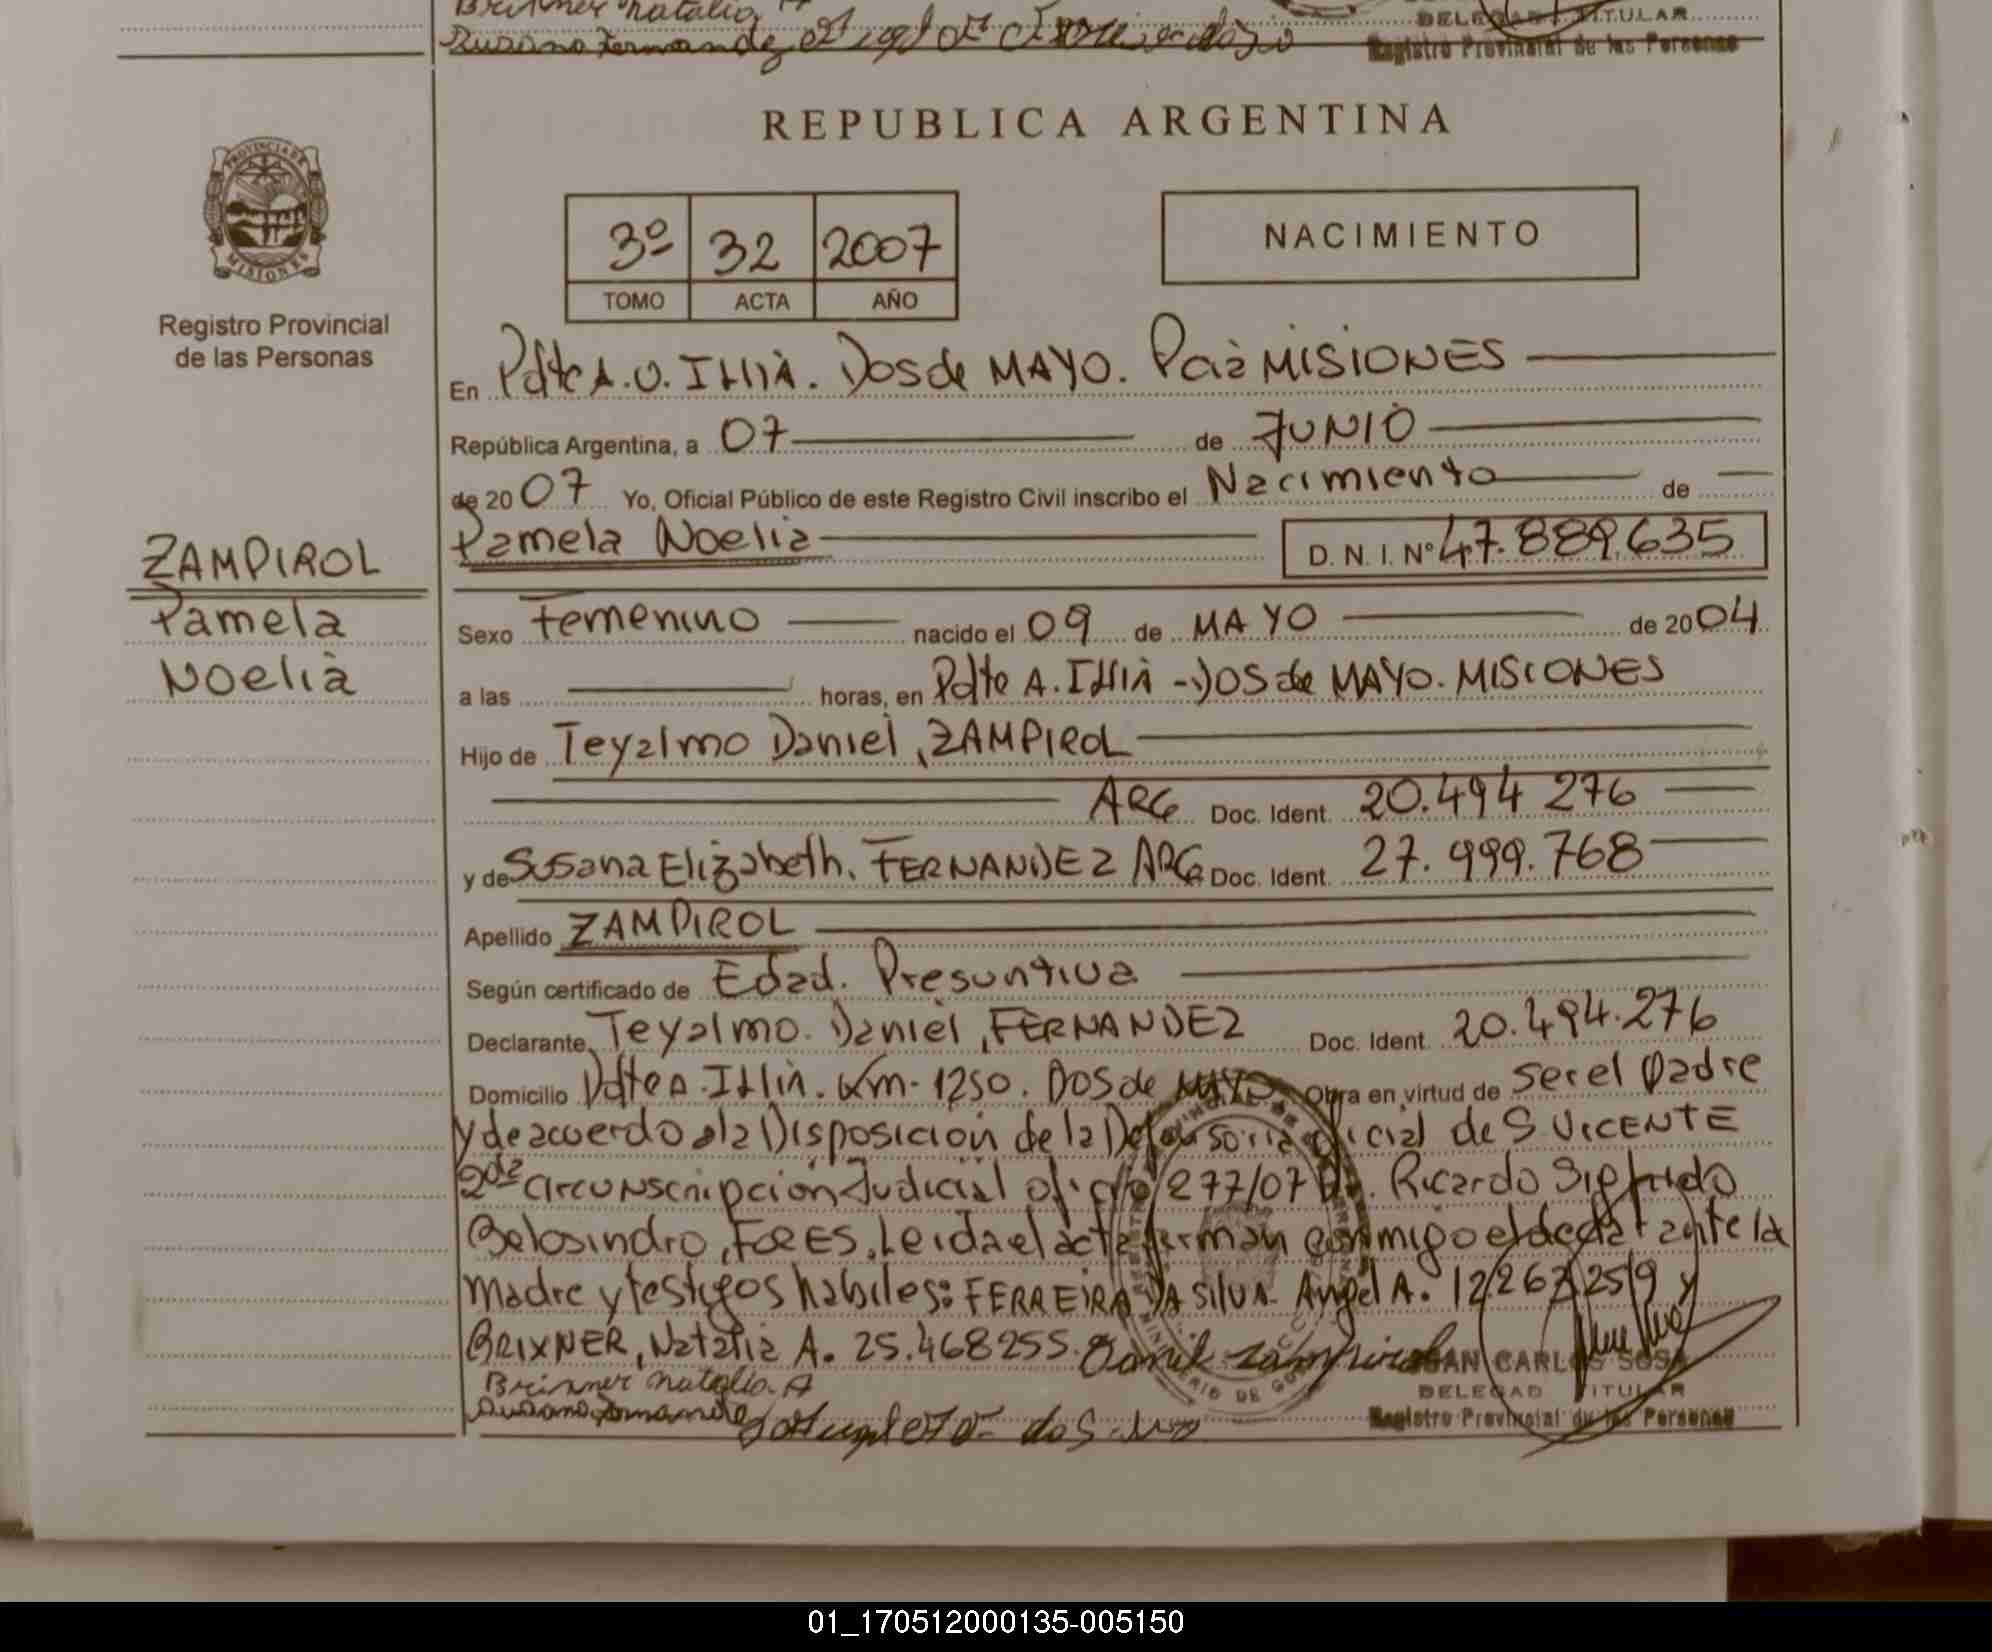 Brixner Natalia
DELEGAD TITULAR
Susana Fernandez
Registro Provincial de las Personas
REPUBLICA ARGENTINA
PROVINCIA DE
MISIONES
Registro Provincial
de las Personas
3º 32 2007
TOMO ACTA AÑO
NACIMIENTO
En Pdte A. U. Illia. Dos de MAYO. Pcia MISIONES
República Argentina, a 07 de JUNIO
de 2007 Yo, Oficial Público de este Registro Civil inscribo el Nacimiento de
Pamela Noelia D. N. I. Nº 47.889.635
ZAMPIROL
Pamela
Noelia
Sexo Femenino nacido el 09 de MAYO de 2004
a las horas, en Pdte A. Illia - Dos de MAYO. MISIONES
Hijo de Teyalmo Daniel, ZAMPIROL
ARG Doc. Ident. 20.494 276
y de Susana Elizabeth. FERNANDEZ ARG Doc. Ident. 27.999.768
Apellido ZAMPIROL
Según certificado de Edad. Presuntiva
Declarante Teyalmo. Daniel, FERNANDEZ Doc. Ident. 20.494.276
Domicilio Pdte A. Illia. Km. 1250. Dos de MAYO Obra en virtud de ser el padre
y de acuerdo a la Disposición de la Defensoria oficial de S. VICENTE
2da circunscripción Judicial oficio 277/07 Dr. Ricardo Sigfrido
Belosindro, FORES. Leida el acta firman conmigo el declarante la
Madre y testigos habiles: FERREIRA DA SILVA Angel A. 12263259 y
BRIXNER, Natalia A. 25.468255. Daniel Zampirol
JUAN CARLOS SOSA
Brixner Natalia. A
DELEGAD TITULAR
Susana Fernandez
Registro Provincial de las Personas
01_170512000135-005150